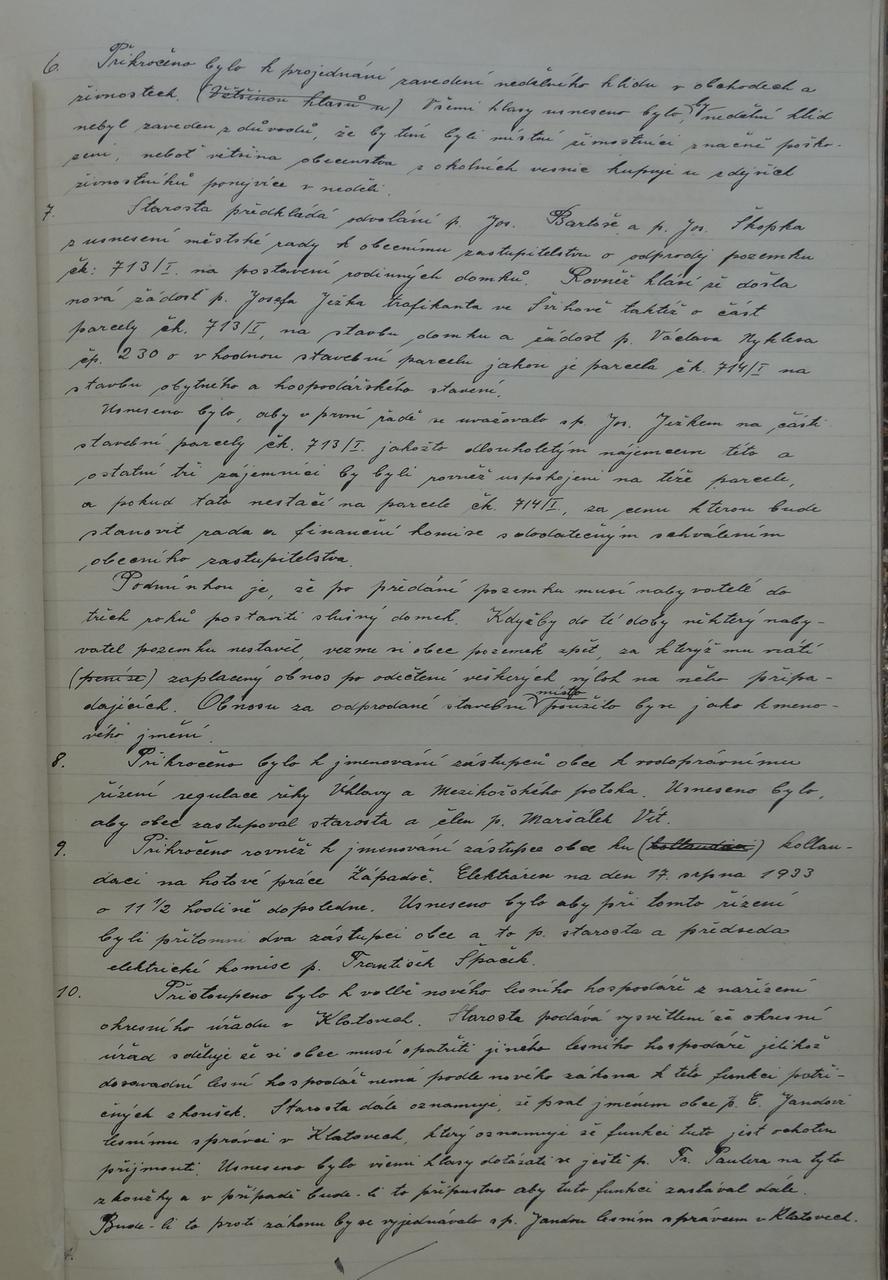 6. Přikročeno bylo k projednání zavedení nedělního klidu v obchodech a
živnostech. (Většinou hlasů u) Všemi hlasy usneseno bylo, by nedělní klid
nebyl zaveden z důvodů, že by tím byli místní živnostníci značně poško-
zeni, neboť většina obecenstva z okolních vesnic kupuje u zdejších
živnostníků ponejvíce v neděli.
7. Starosta předkládá odvolání p. Jos. Bartoše a p. Jos. Škopka
z usnesení městské rady k obecnímu zastupitelstvu o odprodej pozemku
čk: 713/I. na postavení rodinných domků. Rovněž hlásí že došla
nová žádost p. Josefa Ježka trafikanta ve Švihově taktéž o část
parcely čk. 713/I, na stavbu domku a žádost p. Václava Nyklesa
čp. 230 o vhodnou stavební parcelu jakou je parcela čk. 714/I na
stavbu obytného a hospodářského stavení.
Usneseno bylo, aby v první řadě se uvažovalo s p. Jos. Ježkem na části
stavební parcely čk. 713/I. jakožto dlouholetým nájemcem této a
ostatní tři zájemníci by byli rovněž uspokojeni na téže parcele,
a pokud tato nestačí na parcele čk. 714/I, za cenu kterou bude
stanovit rada a finanční komise s dodatečným schválením
obecního zastupitelstva.
Podmínkou je, že po předání pozemku musí nabyvatelé do
třech roků postaviti slušný domek. Kdyžby do té doby některý naby-
vatel pozemku nestavěl, vezme si obec pozemek zpět, za kterýž mu vrátí
(peníze) zaplacený obnos po odečtení veškerých výloh na něho připa-
dajících. Obnosu za odprodané stavební místo použito buď jako kmeno-
vého jmění.
8. Přikročeno bylo k jmenování zástupců obce k vodoprávnímu
řízení regulace řeky Úhlavy a Mezihořského potoka. Usneseno bylo,
aby obec zastupoval starosta a člen p. Maršálek Vít.
9. Přikročeno rovněž k jmenování zástupce obce ku (kollaudaci) kollau-
daci na hotové práce Západoč. Elektráren na den 17. srpna 1933
o 11 1/2 hodině dopoledne. Usneseno bylo aby při tomto řízení
byli přítomni dva zástupci obce a to p. starosta a předseda
elektrické komise p. František Špaček.
10. Přistoupeno bylo k volbě nového lesního hospodáře z nařízení
okresního úřadu v Klatovech. Starosta podává vysvětlení že okresní
úřad sděluje že si obec musí opatřiti jiného lesního hospodáře jelikož
dosavadní lesní hospodář nemá podle nového zákona k této funkci potře-
bných zkoušek. Starosta dále oznamuje, že psal jménem obce p. E. Jandovi
lesnímu správci v Klatovech, který oznamuje že funkci tuto jest ochoten
přijmouti. Usneseno bylo všemi hlasy dotázati se ještě p. Fr. Paulera na tyto
zkoužky a v případě bude-li to přípustno aby tuto funkci zastával dále.
Bude-li to proti zákonu by se vyjednávalo s p. Jandou lesním správcem v Klatovech.